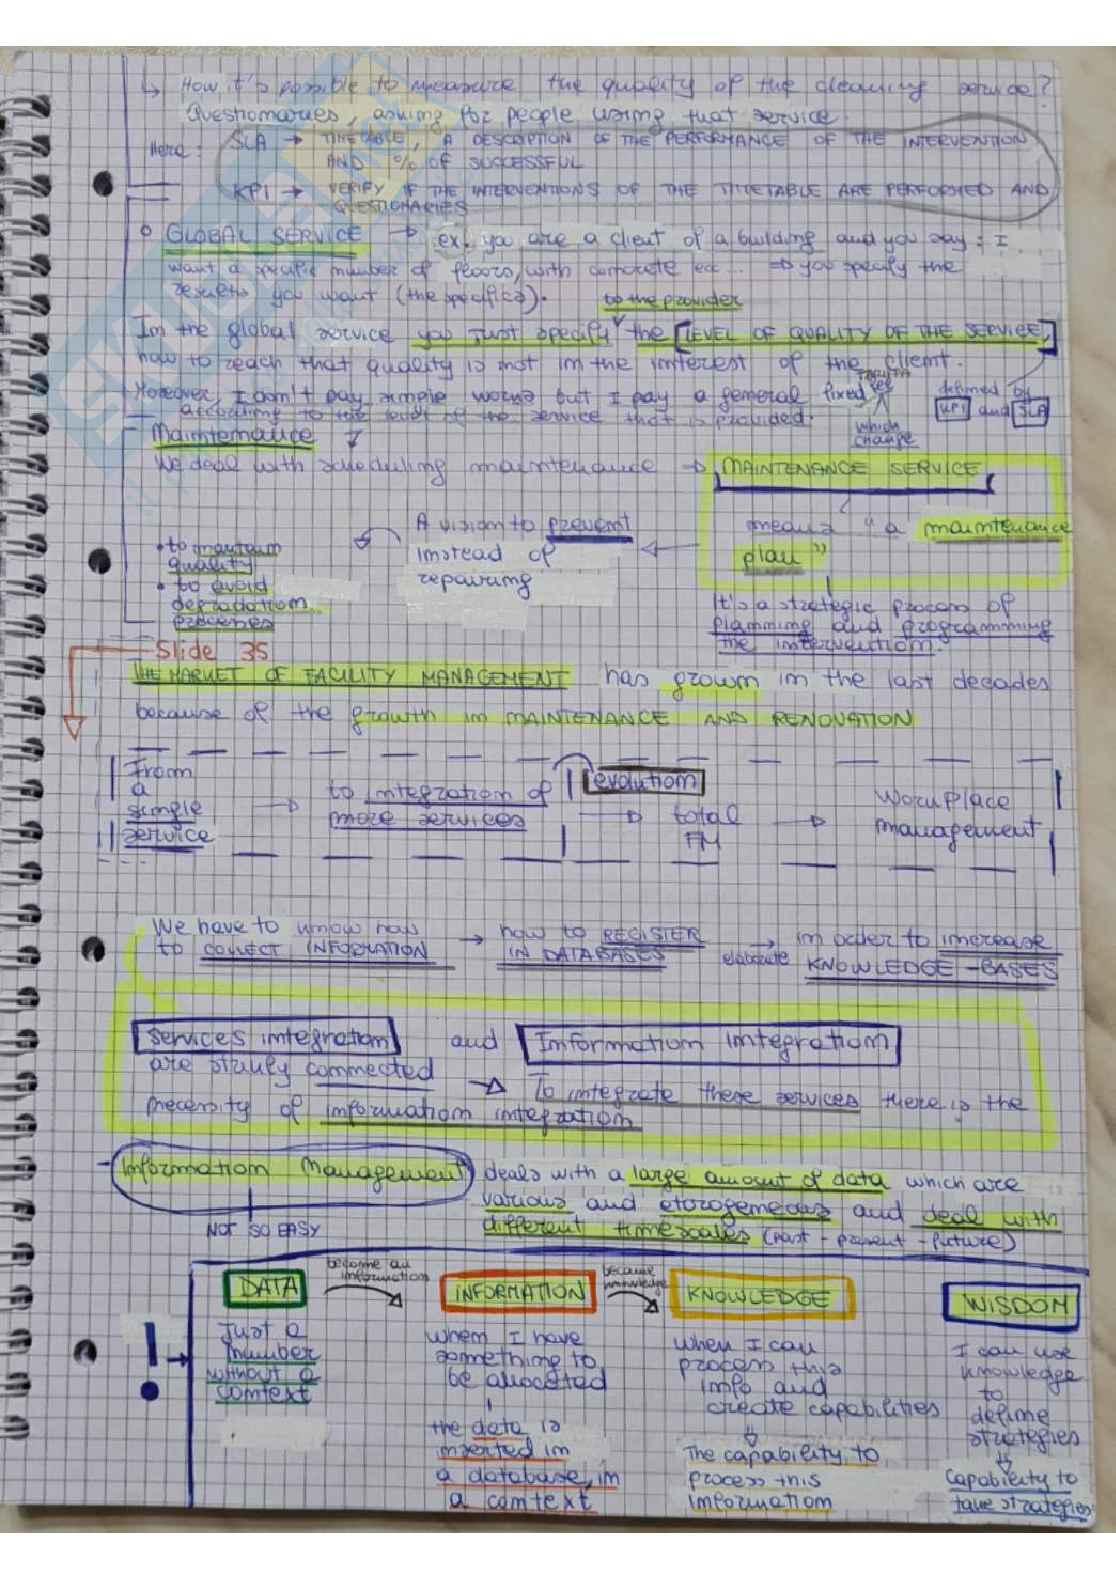 ↳ How it's possible to measure the quality of the cleaning service?
Questionnaires, asking for people using that service.
Here: SLA → TIMETABLE, A DESCRIPTION OF THE PERFORMANCE OF THE INTERVENTION
AND % OF SUCCESSFUL
KPI → VERIFY IF THE INTERVENTIONS OF THE TIMETABLE ARE PERFORMED AND
QUESTIONARIES
GLOBAL SERVICE → ex. you are a client of a building and you say: I
want a specific number of floors, with concrete ec... ⇒ you specify the
results you want (the specifics).
to the provider
In the global service you just specify the [LEVEL OF QUALITY OF THE SERVICE,]
how to reach that quality is not in the interest of the client.
Moreover, I don't pay simple works but I pay a general fixed fee
defined by
according to the level of the service that is provided.
KPI and SLA
which
change
Maintenance
We deal with scheduling maintenance → MAINTENANCE SERVICE
A vision to prevent
instead of
repairing
means "a maintenance
plan"
• to maintain
quality
• to avoid
degradation
processes
It's a strategic process of
planning and programming
the intervention.
Slide 35
THE MARKET OF FACILITY MANAGEMENT has grown in the last decades
because of the growth in MAINTENANCE AND RENOVATION
evolution
From
a
simple
service
→ to integration of
more services
→ total
FM
→ Workplace
management
We have to know how
to COLLECT INFORMATION
→ how to REGISTER
IN DATABASES
→ elaborate
in order to increase
KNOWLEDGE-BASES
Services integration and Information Integration
are strictly connected → To integrate these services there is the
necessity of information integration
- Information Management deals with a large amount of data which are
various and etorogeneous and deal with
NOT SO EASY
different timescales (past - present - future)
DATA
become an
information
INFORMATION
became
knowledge
KNOWLEDGE
WISDOM
!
Just a
number
without a
context
when I have
something to
be allocated
the data is
inserted in
a database, in
a context
when I can
process this
info and
create capabilities
The capability to
process this
information
I can use
knowledge
to
define
strategies
Capability to
take strategies